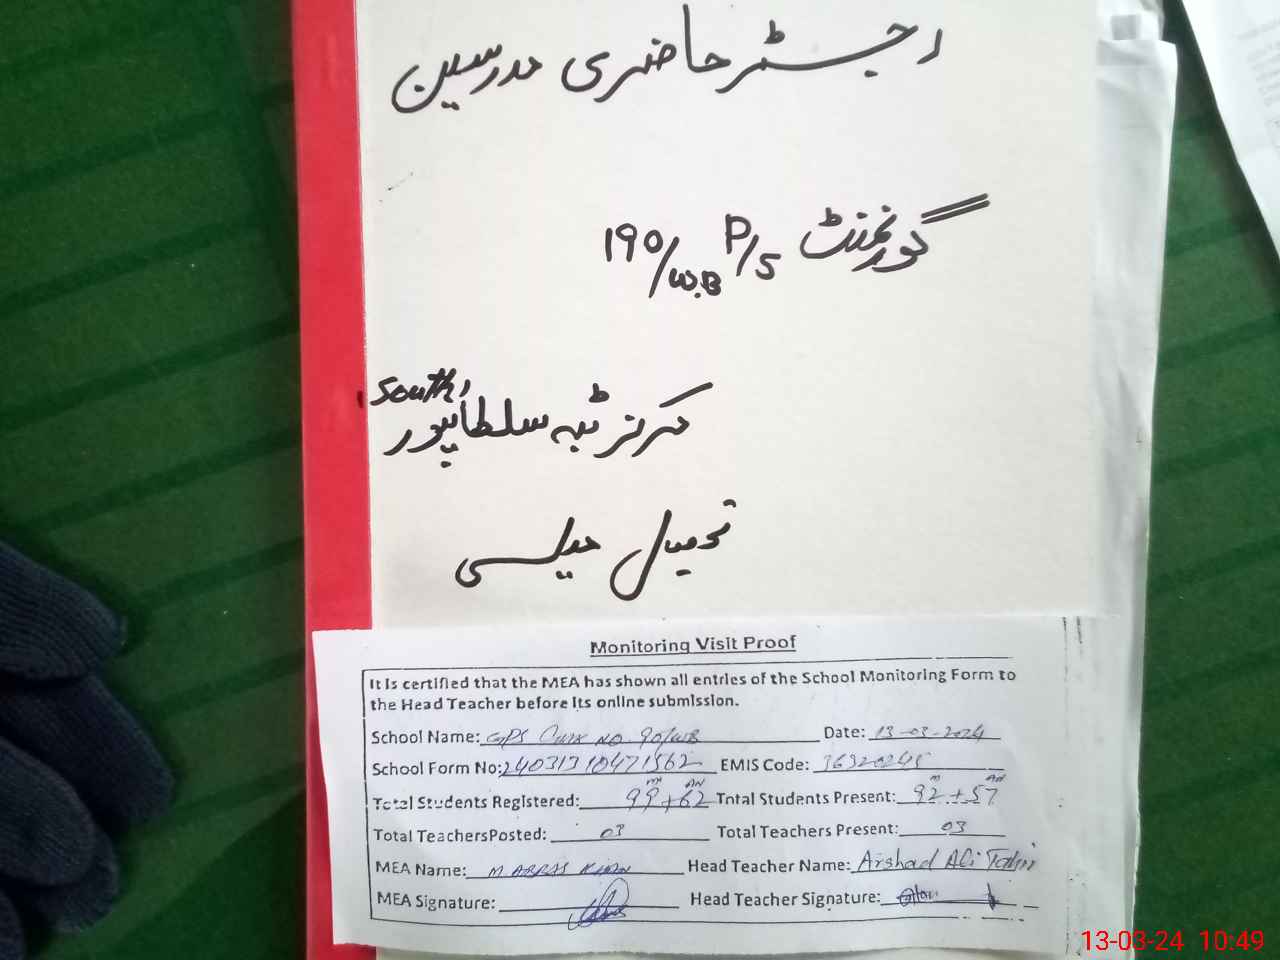 رجسٹر حاضری مدرسین
گورنمنٹ P/S 190/W.B
South,
مرکز ٹبہ سلطانپور
تحصیل میلسی
Monitoring Visit Proof
It is certified that the MEA has shown all entries of the School Monitoring Form to
the Head Teacher before its online submission.
School Name: GPS Chak NO 90/WB Date: 13-03-2024
School Form No: EMIS Code: 36320245
M AN M AN
Total Students Registered: 99+62 Total Students Present: 92+57
Total TeachersPosted: 03 Total Teachers Present: 03
MEA Name: M. ABBAS Head Teacher Name: Arshad Ali Tahir
MEA Signature: Head Teacher Signature:
13-03-24 10:49